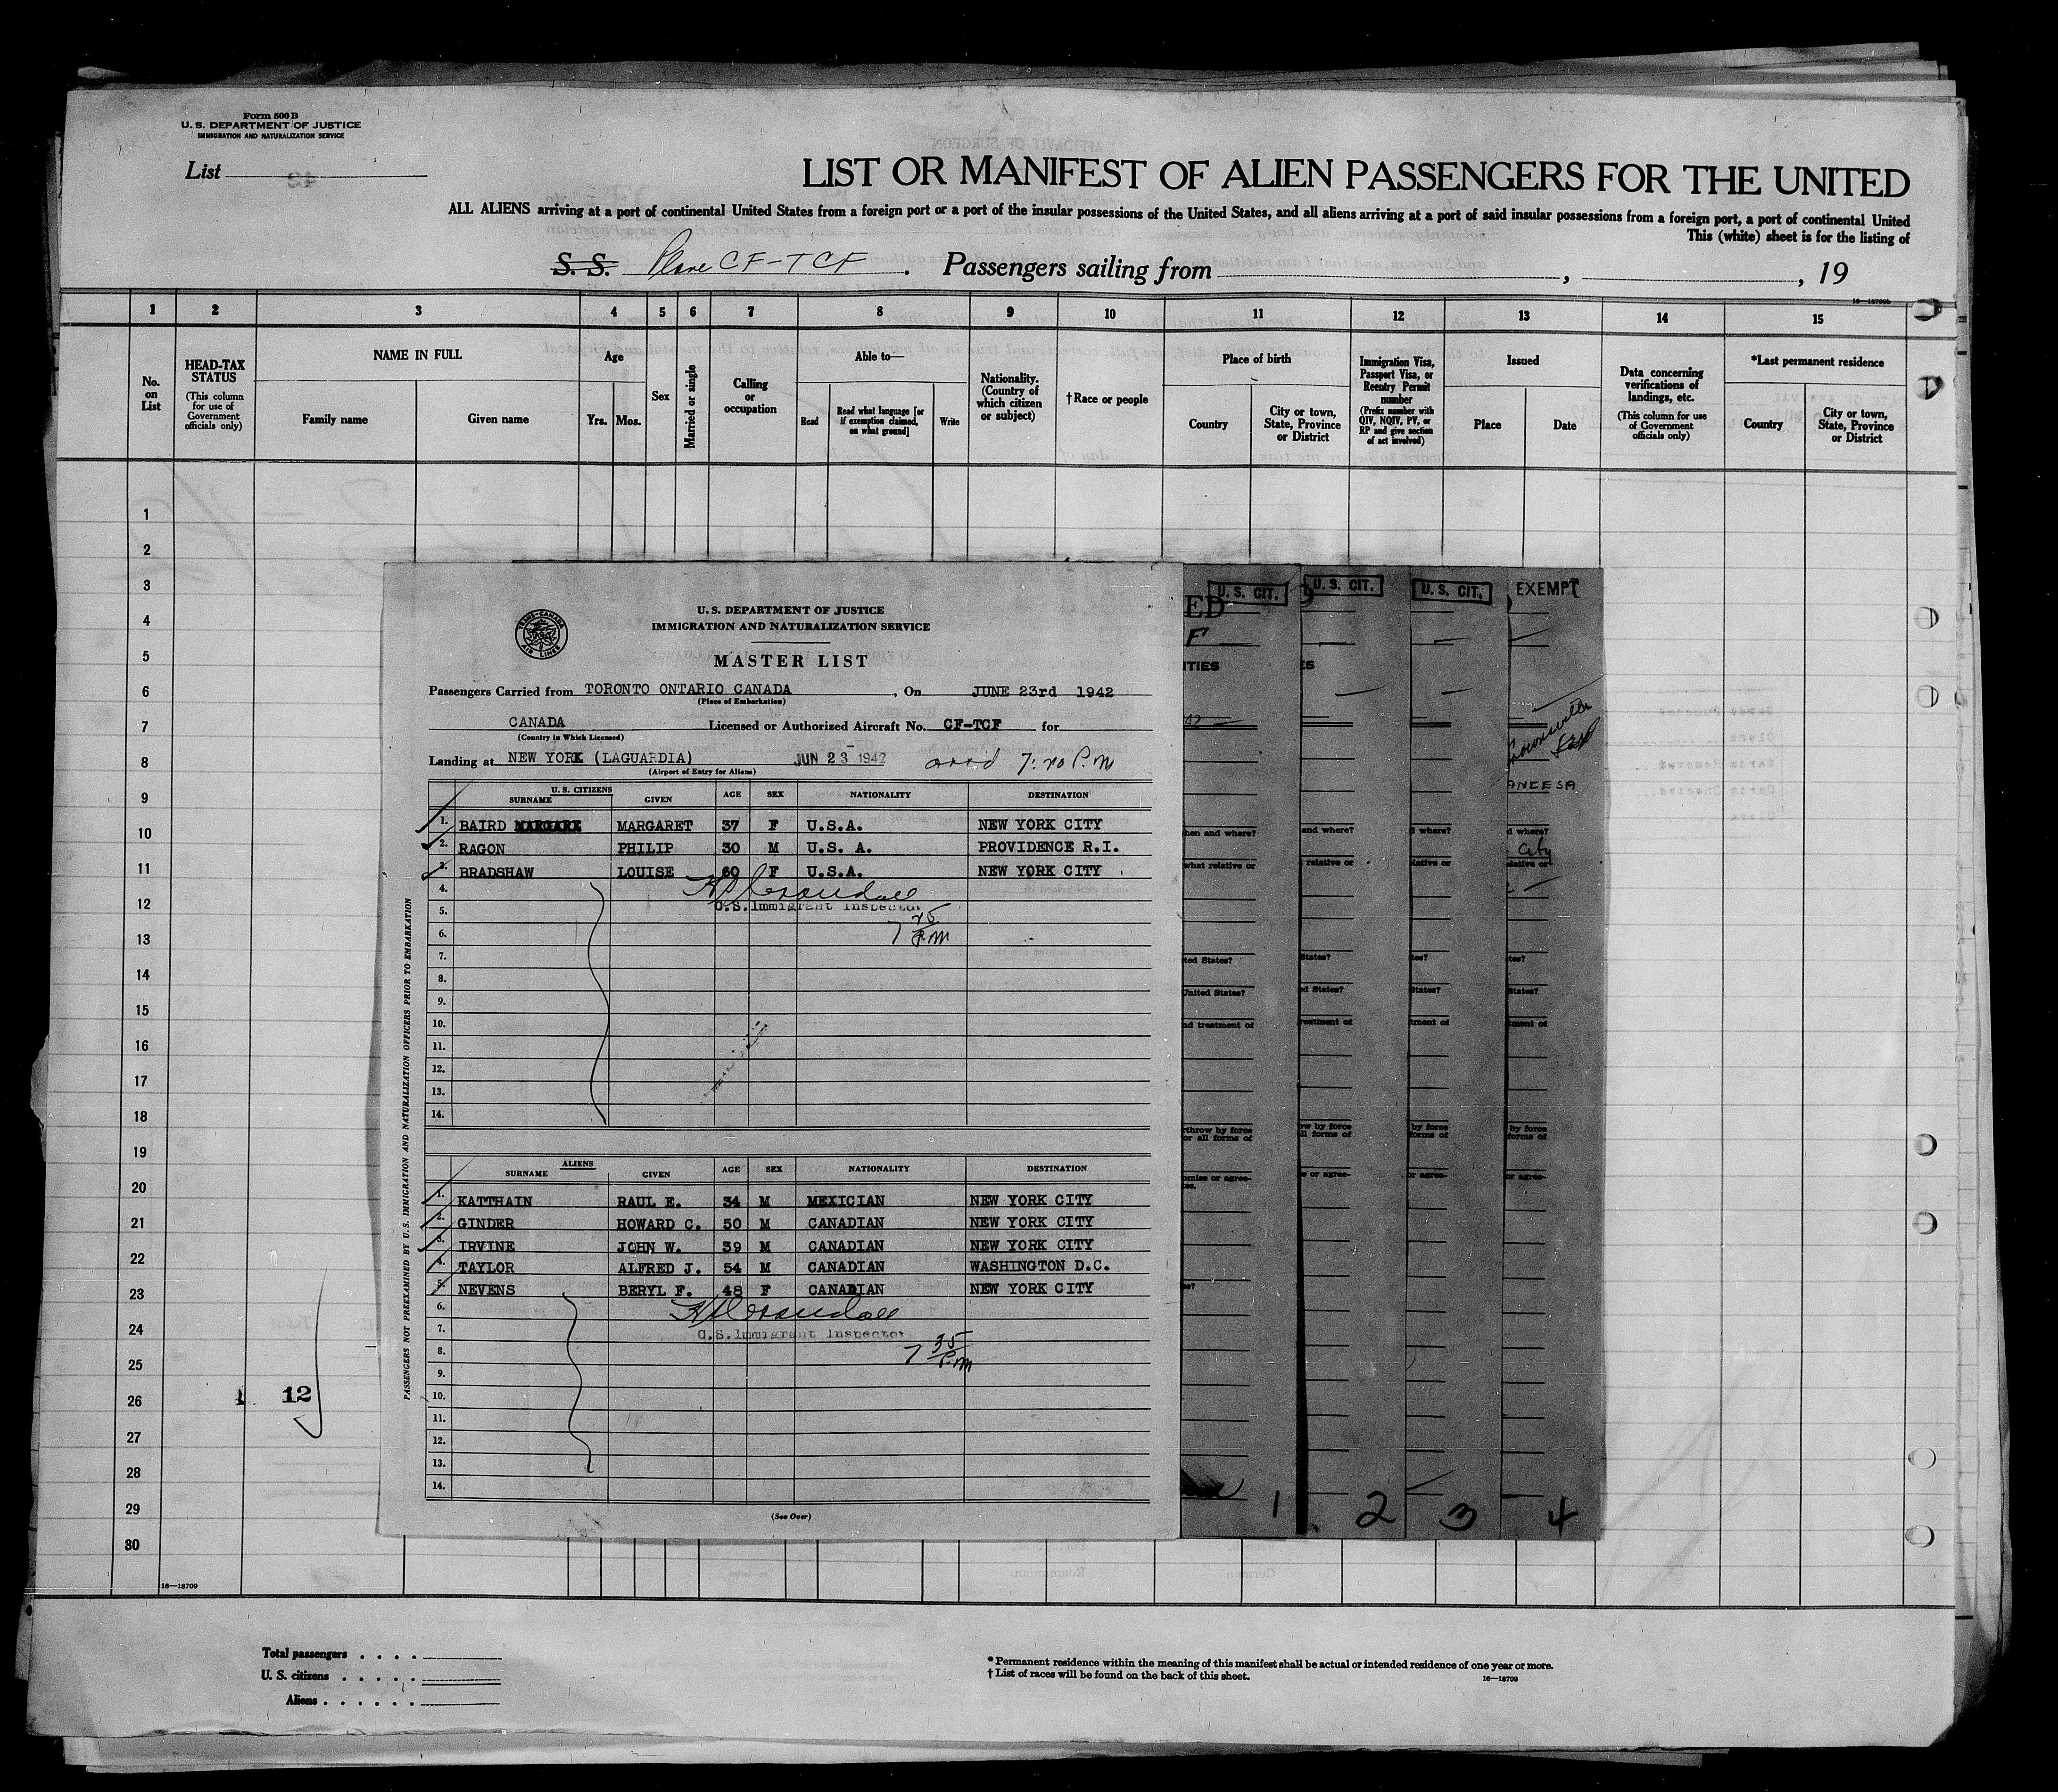 Form 500 B
U. S. DEPARTMENT OF JUSTICE
IMMIGRATION AND NATURALIZATION SERVICE
List
LIST OR MANIFEST OF ALIEN PASSENGERS FOR THE UNITED
ALL ALIENS arriving at a port of continental United States from a foreign port or a port of the insular possessions of the United States, and all aliens arriving at a port of said insular possessions from a foreign port, a port of continental United
This (white) sheet is for the listing of
S. S. Plane CF-TCF. Passengers sailing from , , 19
16—18709b
1 2 3 4 5 6 7 8 9 10 11 12 13 14 15
No. on List
HEAD-TAX STATUS
(This column for use of Government officials only)
NAME IN FULL
Family name Given name
Age
Yrs. Mos.
Sex
Married or single
Calling or occupation
Able to—
Read
Read what language [or if exemption claimed, on what ground]
Write
Nationality. (Country of which citizen or subject)
†Race or people
Place of birth
Country
City or town, State, Province or District
Immigration Visa, Passport Visa, or Reentry Permit number
(Prefix number with QIV, NQIV, PV, or RP and give section of act involved)
Issued
Place Date
Data concerning verifications of landings, etc.
(This column for use of Government officials only)
*Last permanent residence
Country
City or town, State, Province or District
1
2
3
4
5
6
7
8
9
10
11
12
13
14
15
16
17
18
19
20
21
22
23
24
25
26
27
28
29
30
12
16—18709
TRANS-CANADA AIR LINES
U. S. DEPARTMENT OF JUSTICE
IMMIGRATION AND NATURALIZATION SERVICE
MASTER LIST
Passengers Carried from TORONTO ONTARIO CANADA, On JUNE 23rd 1942
(Place of Embarkation)
CANADA Licensed or Authorized Aircraft No. CF-TCF for
(Country in Which Licensed)
Landing at NEW YORK (LAGUARDIA) JUN 23 1942 7:20 P.M
(Airport of Entry for Aliens)
U. S. CITIZENS
SURNAME GIVEN AGE SEX NATIONALITY DESTINATION
1. BAIRD MARGARET 37 F U.S.A. NEW YORK CITY
2. RAGON PHILIP 30 M U.S. A. PROVIDENCE R.I.
3. BRADSHAW LOUISE 60 F U.S.A. NEW YORK CITY
4.
5. U.S. Immigrant Inspector
6. 7 25 P.M
7.
8.
9.
10.
11.
12.
13.
14.
ALIENS
SURNAME GIVEN AGE SEX NATIONALITY DESTINATION
1. KATTHAIN RAUL E. 34 M MEXICIAN NEW YORK CITY
2. GINDER HOWARD C. 50 M CANADIAN NEW YORK CITY
3. IRVINE JOHN W. 39 M CANADIAN NEW YORK CITY
4. TAYLOR ALFRED J. 54 M CANADIAN WASHINGTON D.C.
5. NEVENS BERYL F. 48 F CANADIAN NEW YORK CITY
6.
7. U.S. Immigrant Inspector
8. 7 35 P.M
9.
10.
11.
12.
13.
14.
(See Over)
PASSENGERS NOT PREEXAMINED BY U. S. IMMIGRATION AND NATURALIZATION OFFICERS PRIOR TO EMBARKATION
U. S. CIT. U. S. CIT. U. S. CIT. EXEMPT
ED
F
ITIES
hen and where? and where? where? d where?
City
what relative or relative or lative or lative or
ted States? States? tes? tes?
United States? ed States? States? States?
nd treatment of reatment of tment of tment of
rthrow by force ow by force by force by force
or all forms of ll forms of forms of forms of
omise or agree- e or agree- or agree- or agree-
1 2 3 4
Total passengers
U. S. citizens
Aliens
* Permanent residence within the meaning of this manifest shall be actual or intended residence of one year or more.
† List of races will be found on the back of this sheet.
16—18709